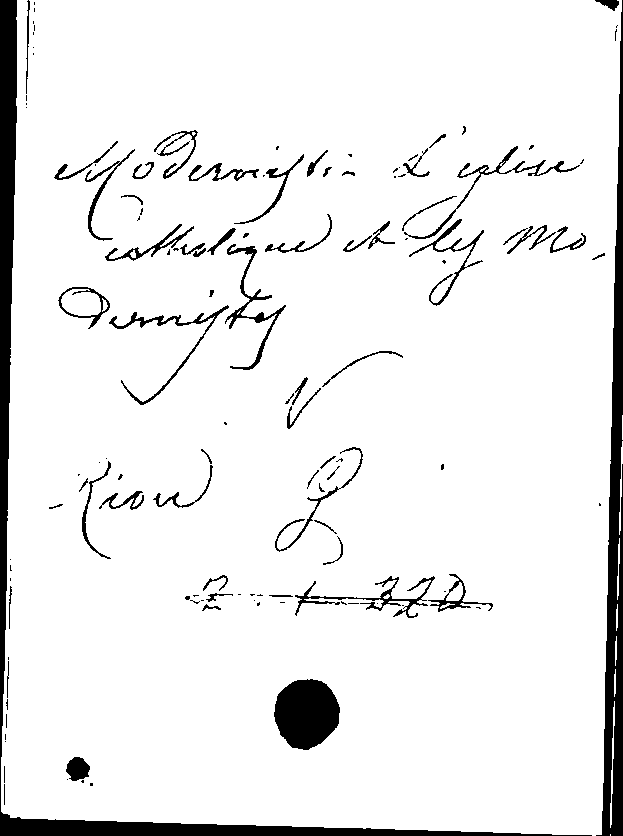 Modernisti - L'eglise
catholique et les Mo-
dernistes
V
Riou G
2 . 1 320